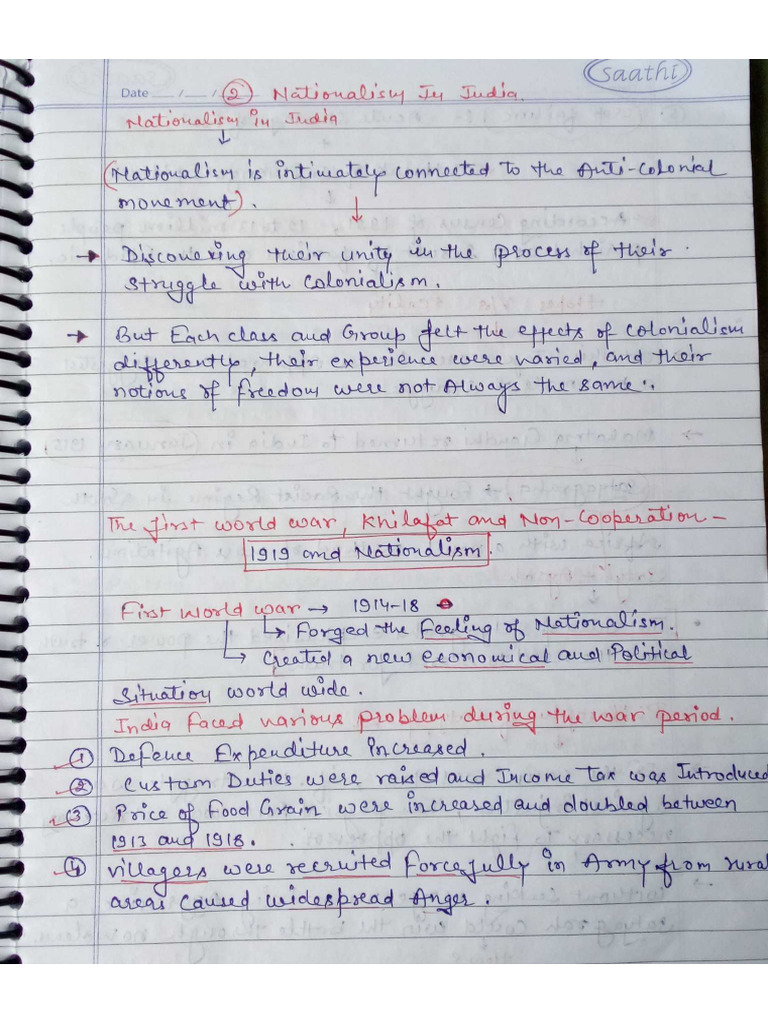 saathi
Date ___/___/ ② Nationalism In India.
Nationalism in India
↓
(Nationalism is intimately connected to the Anti-colonial
movement).
↓
→ Discovering their unity in the process of their
struggle with colonialism.
→ But Each class and Group felt the effects of colonialism
differently, their experience were varied, and their
notions of freedom were not Always the same.
The first world war, Khilafat and Non-Cooperation –
1919 and Nationalism.
First world war → 1914-18
↳ Forged the Feeling of Nationalism.
↳ Created a new economical and Political
Situation world wide.
India faced various problem during the war period.
① Defence Expenditure increased.
② Custom Duties were raised and Income Tax was Introduced
③ Price of Food Grain were increased and doubled between
1913 and 1918.
④ villagers were recruited Forcefully in Army from rural
areas caused widespread Anger.